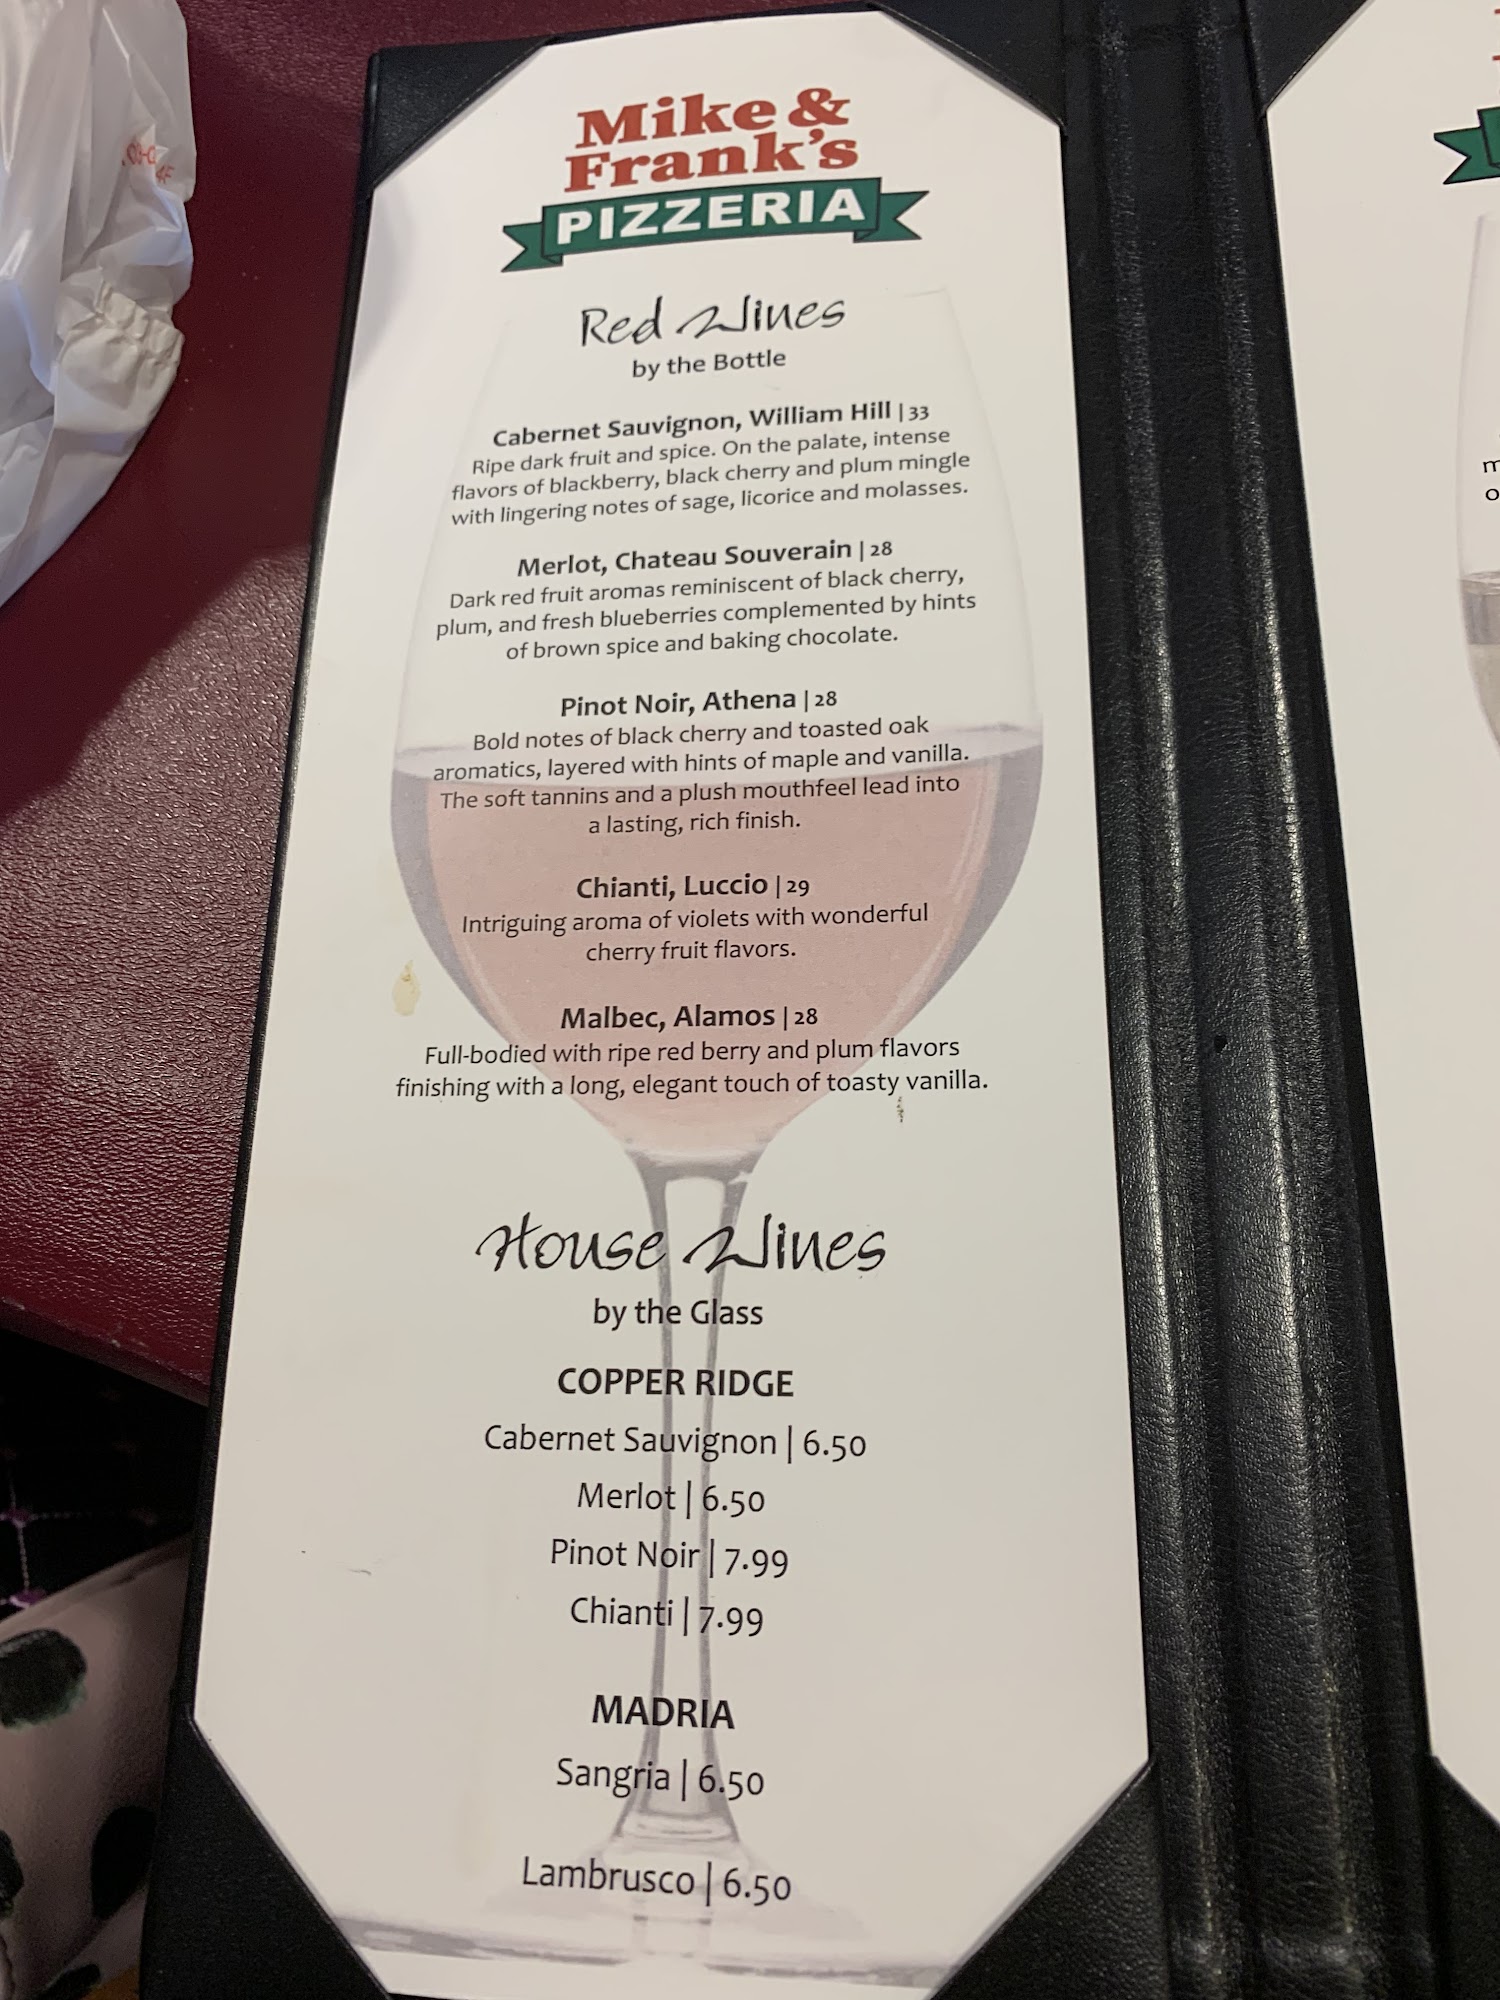 Mike &
Frank's
PIZZERIA
Red Wines
by the Bottle
Cabernet Sauvignon, William Hill | 33
Ripe dark fruit and spice. On the palate, intense
flavors of blackberry, black cherry and plum mingle
with lingering notes of sage, licorice and molasses.
Merlot, Chateau Souverain | 28
Dark red fruit aromas reminiscent of black cherry,
plum, and fresh blueberries complemented by hints
of brown spice and baking chocolate.
Pinot Noir, Athena | 28
Bold notes of black cherry and toasted oak
aromatics, layered with hints of maple and vanilla.
The soft tannins and a plush mouthfeel lead into
a lasting, rich finish.
Chianti, Luccio | 29
Intriguing aroma of violets with wonderful
cherry fruit flavors.
Malbec, Alamos | 28
Full-bodied with ripe red berry and plum flavors
finishing with a long, elegant touch of toasty vanilla.
House Wines
by the Glass
COPPER RIDGE
Cabernet Sauvignon | 6.50
Merlot | 6.50
Pinot Noir | 7.99
Chianti | 7.99
MADRIA
Sangria | 6.50
Lambrusco | 6.50